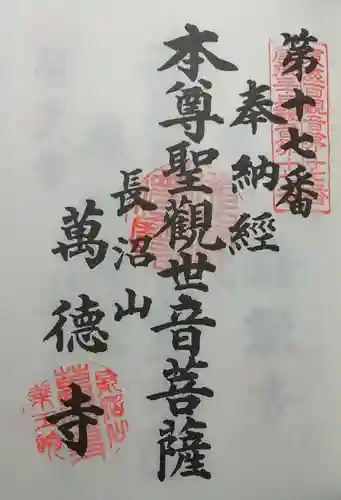 第十七番
奉納経
本尊聖觀世音菩薩
長沼山
萬德寺